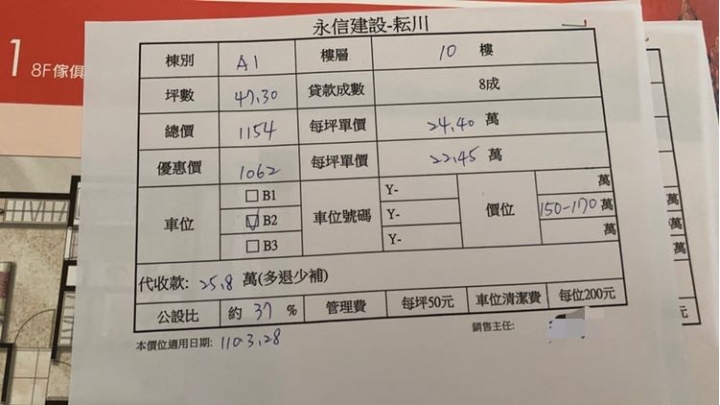 永信建設-耘川
1 8F傢俱
棟別 A1 樓層 10 樓
坪數 47.30 貸款成數 8成
總價 1154 每坪單價 24.40 萬
優惠價 1062 每坪單價 22.45 萬
車位 □B1 ☑B2 □B3 車位號碼 Y- Y- Y- 價位 萬 150-170萬 萬
代收款: 25.8 萬(多退少補)
公設比 約 37 % 管理費 每坪50元 車位清潔費 每位200元
本價位適用日期: 110.3.28 銷售主任:
萬
萬
萬
元